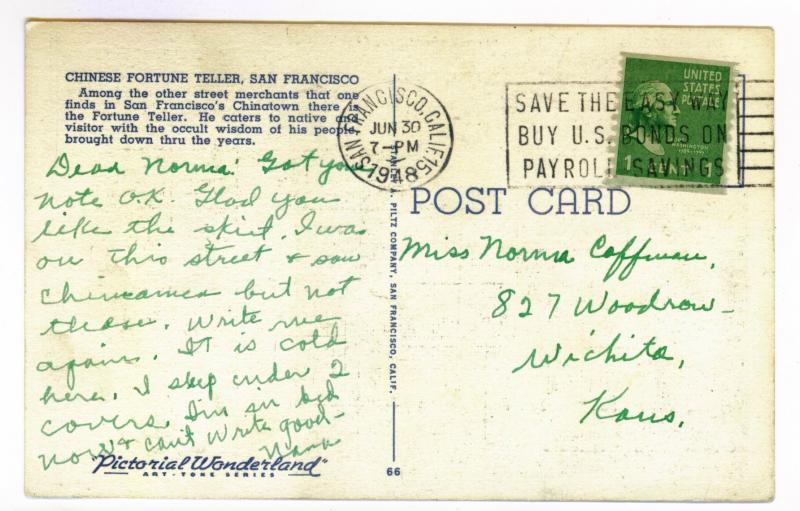 CHINESE FORTUNE TELLER, SAN FRANCISCO
Among the other street merchants that one
finds in San Francisco's Chinatown there is
the Fortune Teller. He caters to native and
visitor with the occult wisdom of his people,
brought down thru the years.
Dead Norma: Got your
note O.K. Glad you
like the skirt. I was
on this street & saw
Chinamen but not
these. Write me
again. It is cold
here. I sleep under 2
covers. I'm in bed
now & can't write good-
Nana
"Pictorial Wonderland"
ART-TONE SERIES
STANLEY A. PILTZ COMPANY, SAN FRANCISCO, CALIF.
66
SAN FRANCISCO, CALIF. 15
JUN 30
7-PM
1948
SAVE THE EASY WAY
BUY U.S. BONDS ON
PAYROLL SAVINGS
UNITED
STATES
POSTAGE
WASHINGTON
1 CENT 1
POST CARD
Miss Norma Coffman,
827 Woodrow-
Wichita,
Kans.